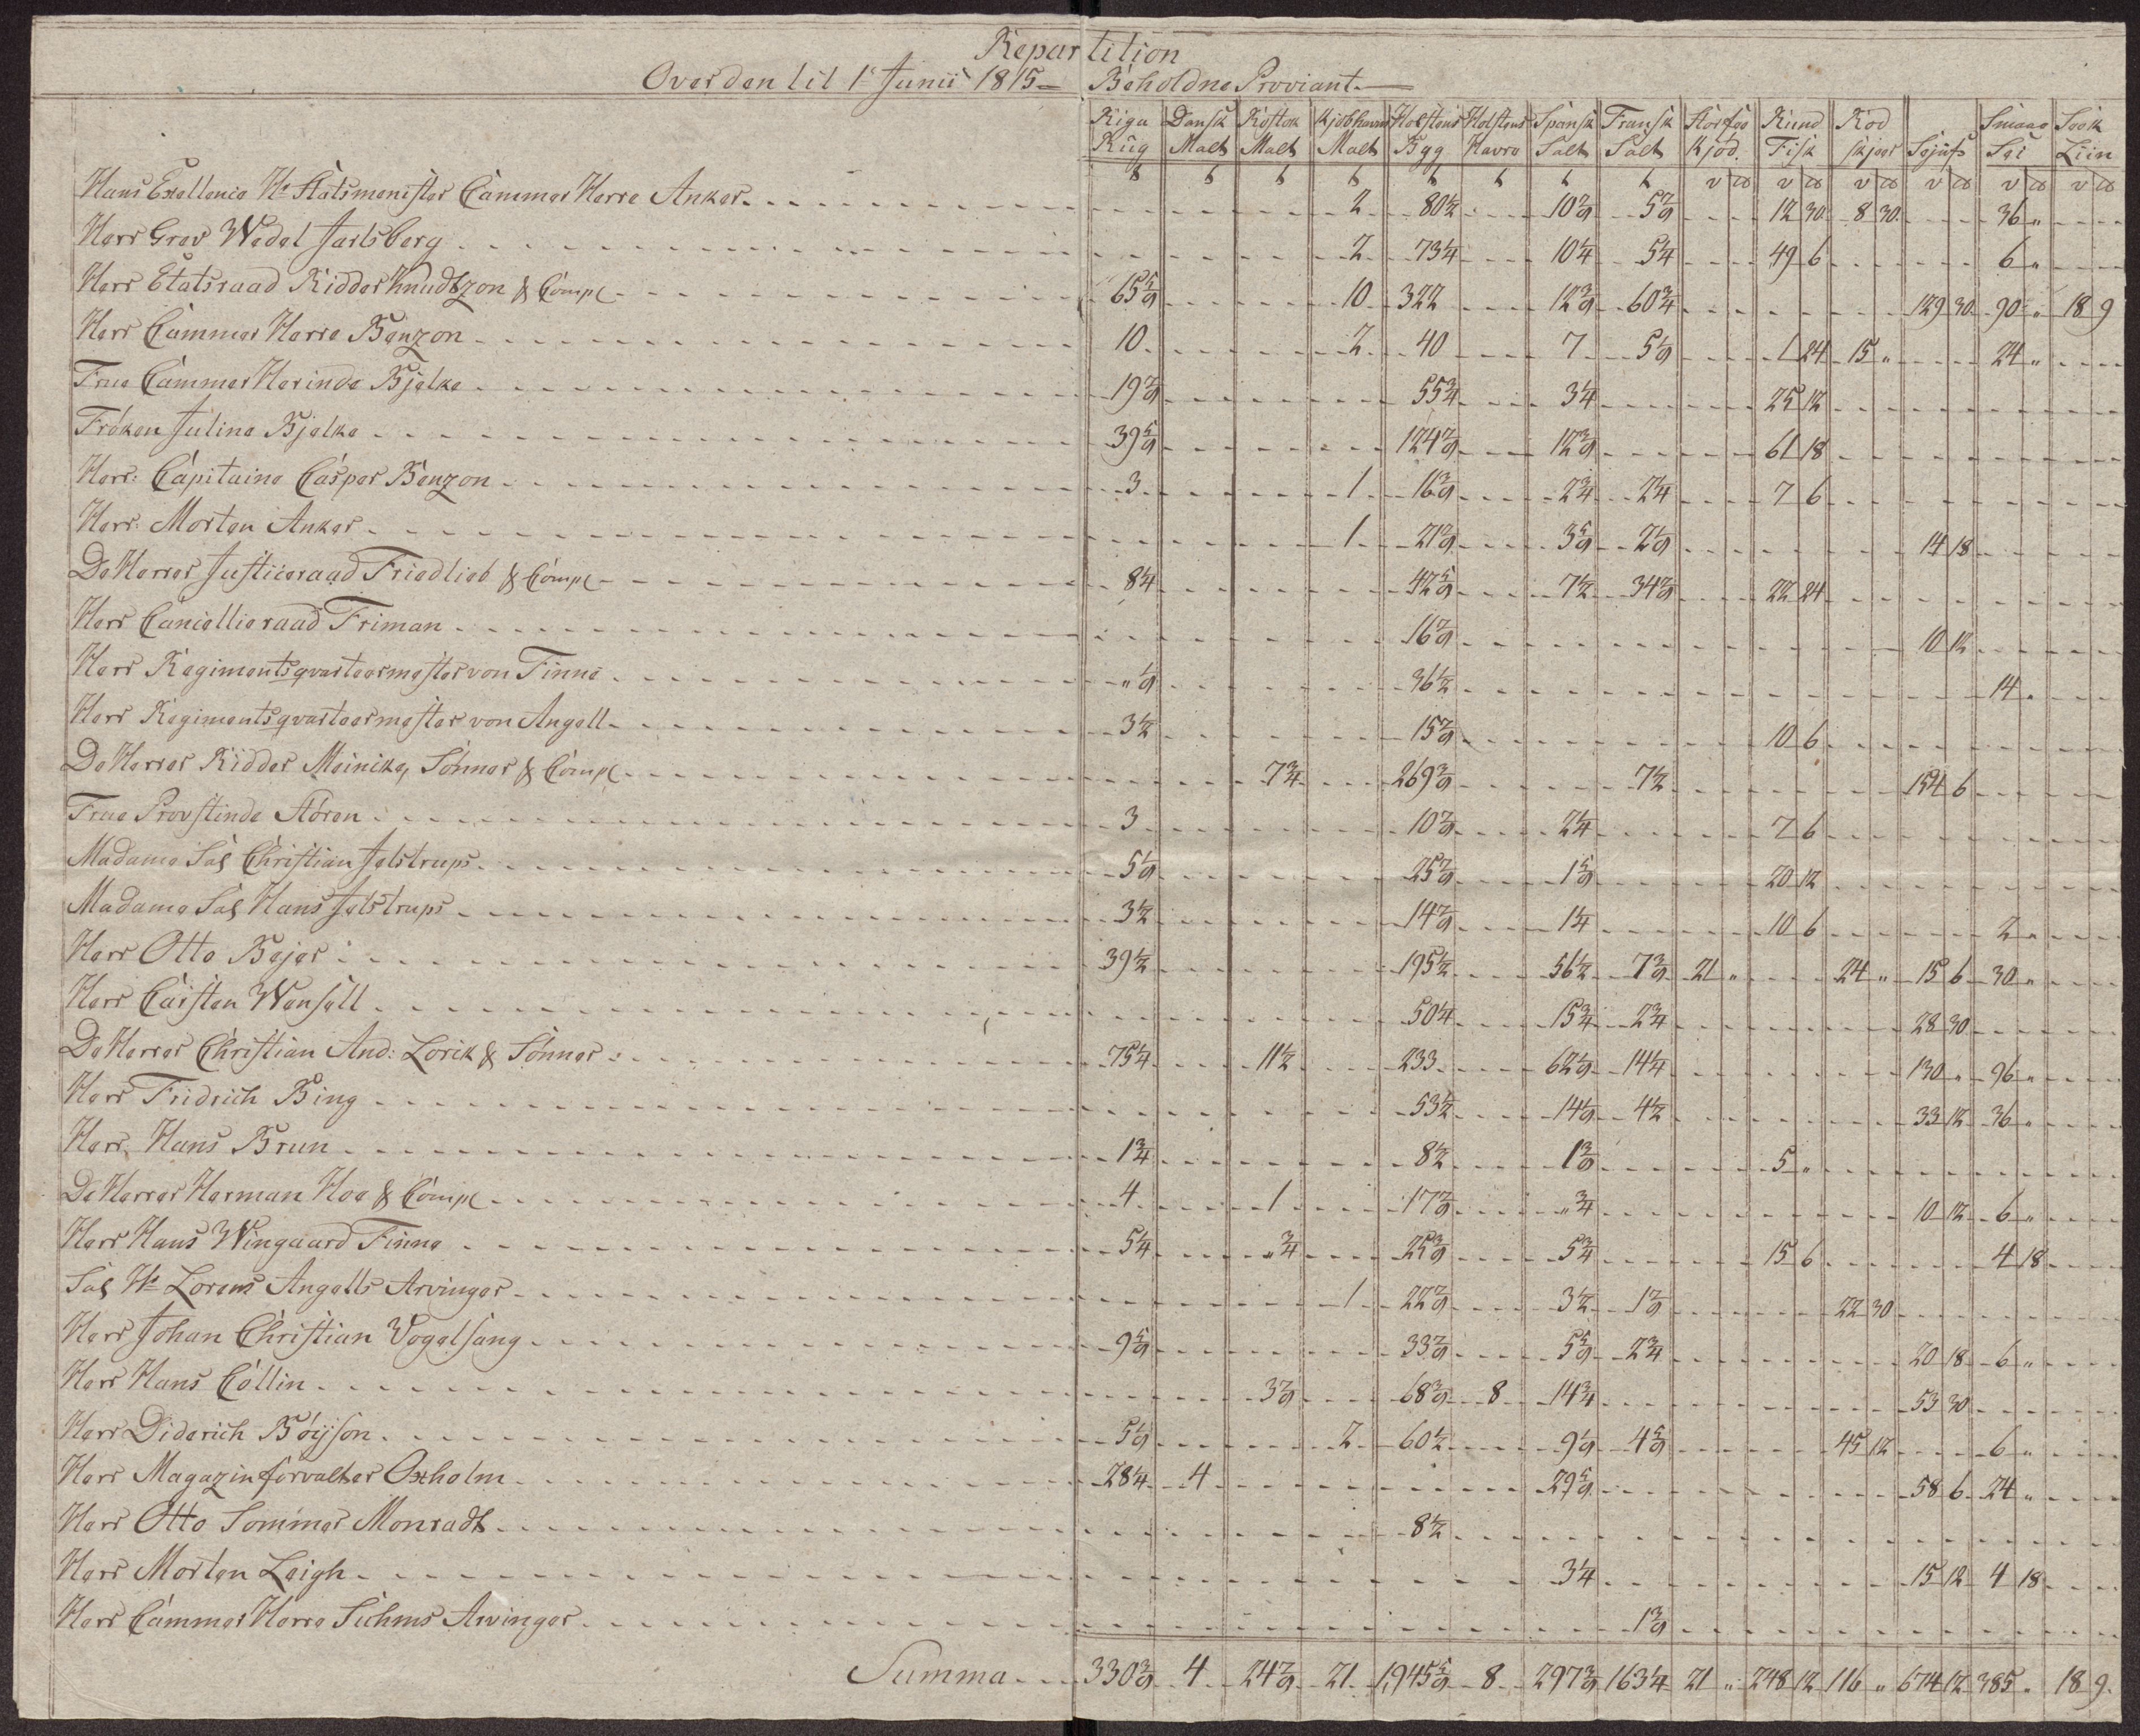 Repartition
Over den til 1e Junii 1815 = Beholdne Proviant.
Riga Rug Dansk Malt Rostok Malt Kjøbhavns Malt Holstens Byg Holstens Havre Spansk Salt Fransk Salt Storfee Kjød. Rund Fisk Rød Skjær Sejufs Smaae Sei Sook Liin
Hans Exellence Hr Statsmenister Cammer Herre Anker. 2 80 1/2 10 7/9 5 7/9 12 30 8 30 36 "
Herr Grev Wedel Jarlsberg 2 73 1/4 10 1/4 5 1/4 49 6 6 "
Herr Etatsraad Ridder Knudtzon & Comp 65 5/9 10 322 12 3/9 60 3/4 129 30 90 " 18 9
Herr Cammer Herre Benzon 10 2 40 7 5 1/9 1 24 15 " 24 "
Frue Cammer Herinde Bjelke 19 7/9 55 3/4 3 1/4 25 12
Frøken Juline Bjelke 39 5/9 124 7/9 12 3/9 61 18
Herr: Capitaine Casper Benzon 3 1 16 3/9 2 3/4 2 3/4 7 6
Herr: Morten Anker 1 21 3/9 3 5/9 2 1/9 14 18
De Herrer Justiceraad Friedlieb & Comp 8 1/4 42 5/9 7 1/2 34 7/9 22 24
Herr Cancellieraad Friman 16 7/9 10 12
Herr Regimentsqvarteermester von Finne " 1/9 36 1/2 14 "
Herr Regimentsqvarteermester von Angell 3 1/2 15 7/9 10 6
De Herrer Ridder Meincke, Sønner & Comp 7 3/4 269 3/9 7 1/2 154 6
Frue Provstinde Støren 3 10 7/9 2 1/4 7 6
Madame Sal Christian Jelstrups 5 1/9 25 7/9 1 5/9 20 12
Madame Sal Hans Jelstrups 3 1/2 14 7/9 1 1/4 10 6 2 "
Herr Otto Bejer 39 1/2 195 1/2 56 1/2 7 3/9 21 " 24 " 15 6 30 "
Herr Carsten Wensell 50 1/4 15 3/4 2 3/4 28 30
De Herrer Christian And: Lorck & Sønner 75 1/4 11 1/2 233 62 1/9 14 1/4 130 " 96 "
Herr Fridrich Bing 53 1/2 14 1/9 4 1/2 33 12 36 "
Herr. Hans Brun 1 3/4 8 1/2 1 3/9 5 "
De Herrer Herman Hoe & Comp 4 1 17 7/9 " 3/4 10 12 6 "
Herr Hans Wingaard Finne 5 1/4 " 3/4 25 3/9 5 3/4 15 6 4 18
Sal Hr Lorens Angells Arvinger 1 22 7/9 3 1/2 1 7/9 22 30
Herr Johan Christian Vogelsang 9 5/9 33 7/9 5 5/9 2 3/4 20 18 6 "
Herr Hans Collin 3 7/9 68 3/9 8 14 3/4 53 30
Herr Diderich Bøyson 5 1/9 2 60 1/2 9 1/9 4 5/9 45 12 6 "
Herr Magazinforvalter Oxholm 28 1/4 4 29 5/9 58 6 24 "
Herr Otto Sommer Monradt 8 1/2
Herr Morten Leigh 3 1/4 15 12 4 18
Herr Cammer Herre Suhms Arvinger 1 3/9
Summa 330 3/9 4 24 7/9 21 1,945 5/9 8 297 3/9 163 1/4 21 " 248 12 116 " 674 12 385 " 18 9.